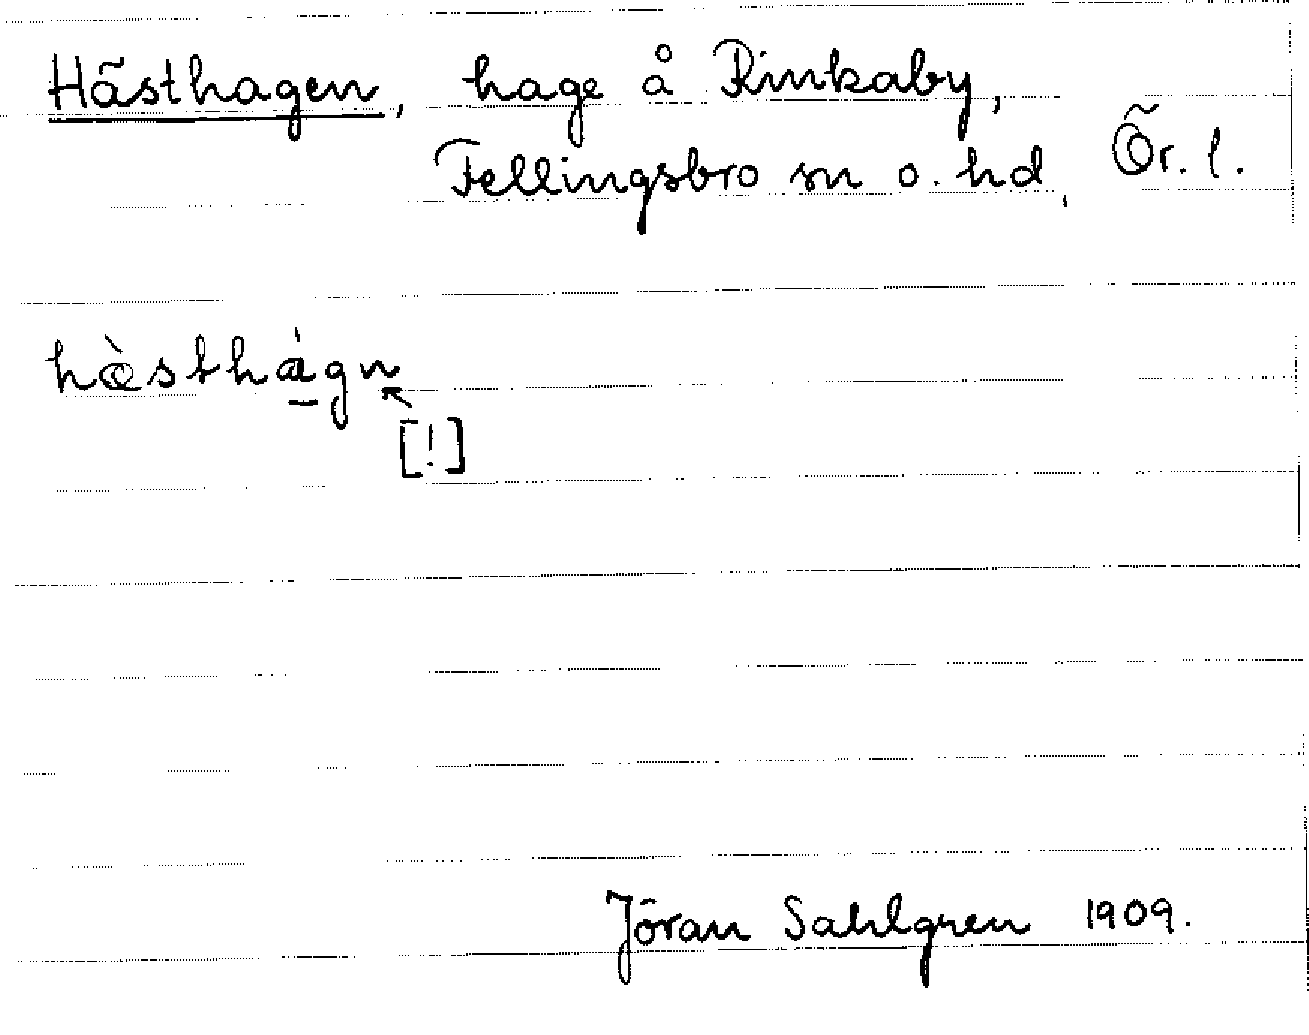 Hästhagen, hage å Rinkaby,
Fellingsbro sn o. hd, Ör. l.
hæ̀sthá̱gn
[!]
Jöran Sahlgren 1909.